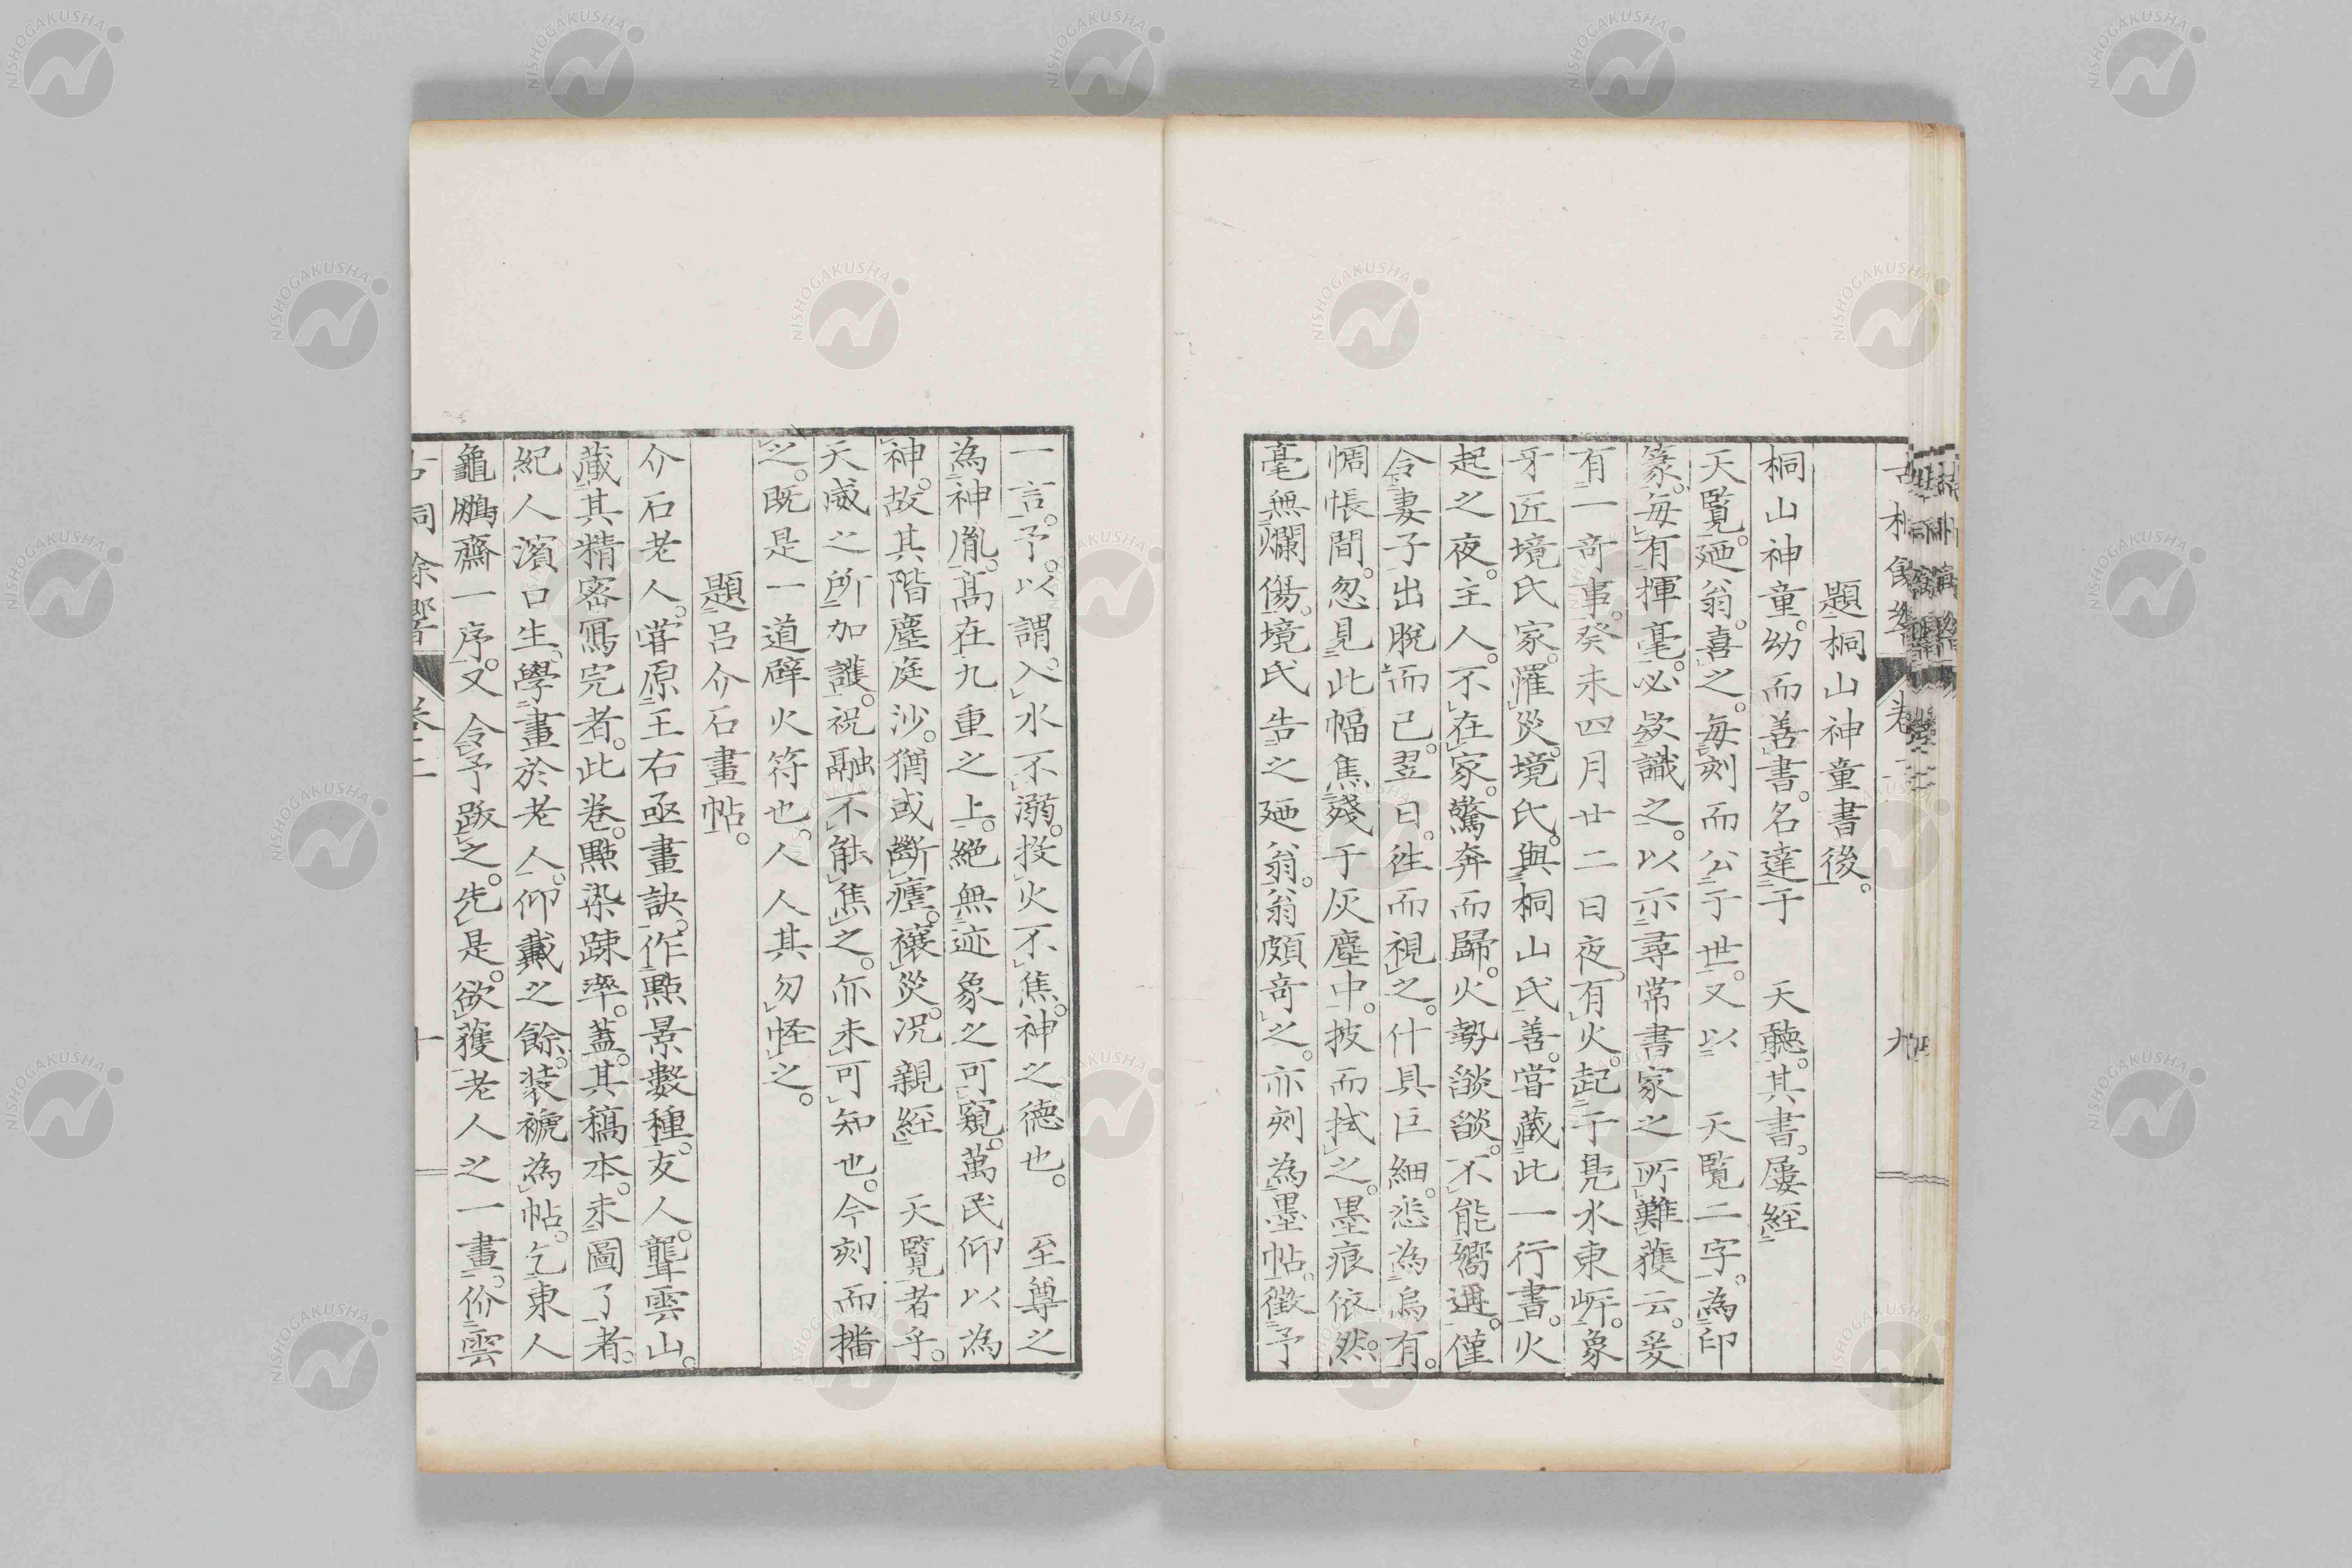 題桐山神童書後。
桐山神童。幼而善書。名達于　天聽。其書。屢經
天覽。廼翁。喜之。每刻而公于世。又以　天覽二字。為印
篆。每有揮毫。必欵識之。以示尋常書家之所難獲云。爰
有一奇事。癸未四月廿二日夜。有火起于鳧水東岸。象
牙匠境氏家。罹災。境氏。與桐山氏善。嘗藏此一行書。火
起之夜。主人。不在家。驚奔而歸。火勢燄燄。不能嚮邇。僅
令妻子出脫而已。翌日。往而視之。什具巨細。悉為烏有。
惆悵間。忽見此幅焦殘于灰塵中。披而拭之。墨痕依然。
毫無爛傷。境氏告之廼翁。翁頗奇之。亦刻為墨帖。徵予
一言。予。以謂。入水不溺。投火不焦。神之德也。　至尊之
為神胤。高在九重之上。絕無迹象之可窺。萬民仰以為
神。故其階塵庭沙。猶或斷瘧。禳災。況親經　天覽者乎。
天威之所加護。祝融不能焦之。亦未可知也。今刻而播
之。既是一道辟火符也。人人其勿怪之。
題呂介石畫帖。
介石老人。嘗原王右丞畫訣。作點景數種。友人。聾雲山。
藏其精密寫完者。此卷。點染踈率。蓋。其稿本。未圖了者。
紀人濱口生。學畫於老人。仰戴之餘。装褫為帖。乞東人
龜鵬齋一序。又令予跋之。先是。欲獲老人之一畫。价雲
卷二
十